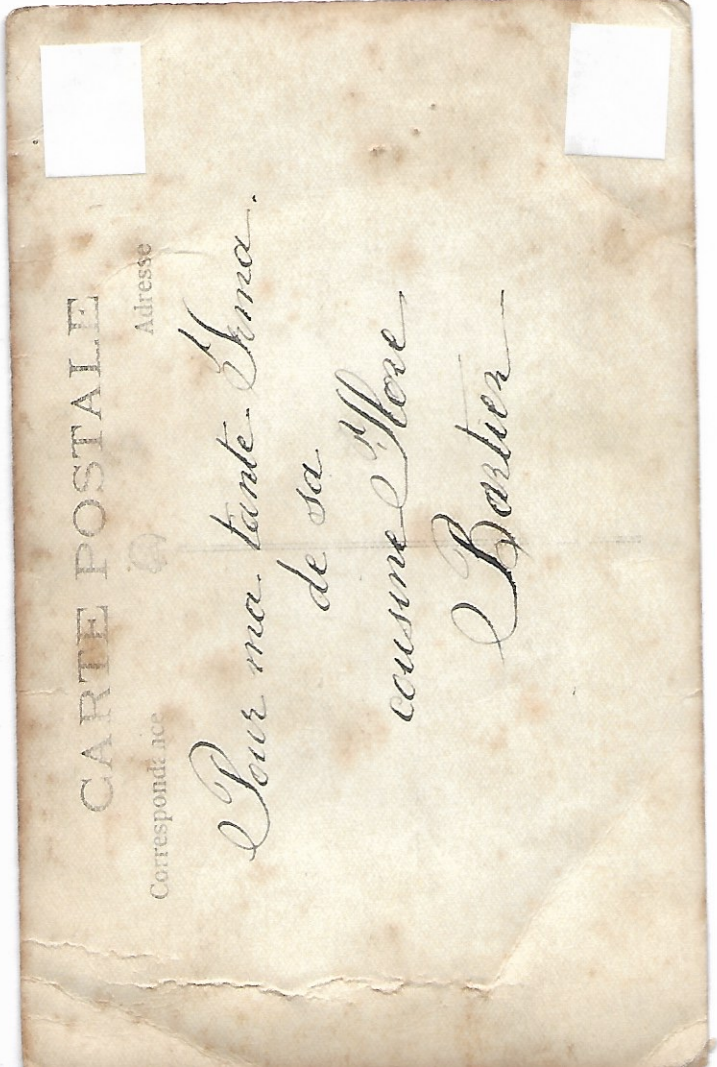 CARTE POSTALE
Correspondance
Adresse
Pour ma tante Irma.
de sa
cousine Flore
Bartier